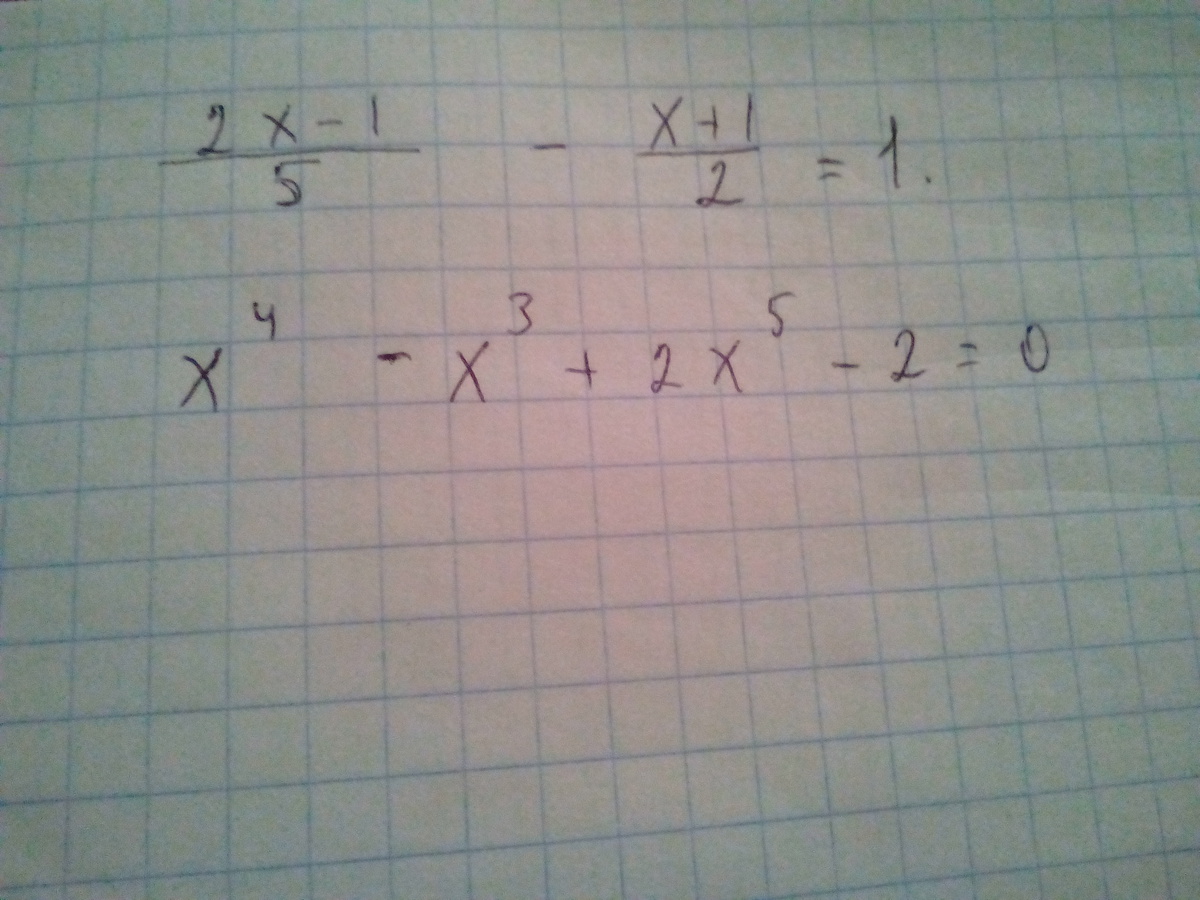 (2x-1)/5 - (x+1)/2 = 1.
x^4 - x^3 + 2x^5 - 2 = 0